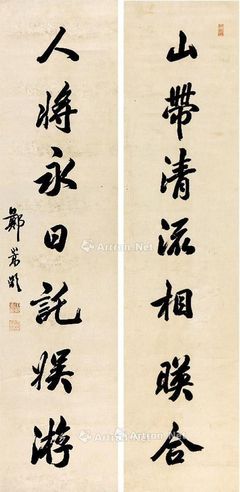 山帶清流相暎合
人將永日託娱游
鄭
Artron.Net
Artron.Net